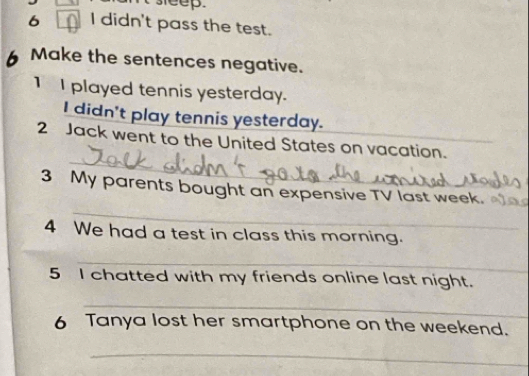 sleep.
6 I didn't pass the test.
6 Make the sentences negative.
1 I played tennis yesterday.
I didn't play tennis yesterday.
2 Jack went to the United States on vacation.
Jack didn't go to the
3 My parents bought an expensive TV last week.
4 We had a test in class this morning.
5 I chatted with my friends online last night.
6 Tanya lost her smartphone on the weekend.